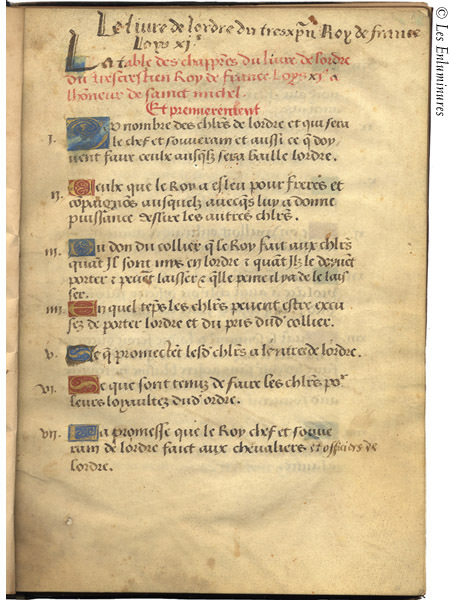 Le livre de lordre du tresxpn Roy de france
Loys xjᵉ
La table des chappres du livre de lordre
du trescrestien Roy de france Loys xjᵉ a
lhoneur de sainct michel.
Et premierement
I. Du nombre des chlrs de lordre et qui sera
le chef et souverain et aussi ce q doy
vent faire ceulx ausqlz sera baille lordre.
II. Ceulx que le Roy a esleu pour freres et
compaignons ausquelz avecqs luy a donne
puissance deslire les autres chlrs.
III. Du don du collier q le Roy fait aux chlrs
quāt Il sont mys en lordre & quāt Ilz le doyvēt
porter & peuēt laisser & qlle peine il ya de le lais
ser.
IIII. En quel temps les chlrs peuent estre excu
sez de porter lordre et du pris dud' collier.
V. Ce q promectēt lesd' chlrs a lentree de lordre.
VI. Ce que sont tenuz de faire les chlrs poʳ
leurs loyaultez dud' ordre.
VII. La promesse que le Roy chef et souve
rain de lordre faict aux chevaliers et officiers de
lordre.
© Les Enluminures